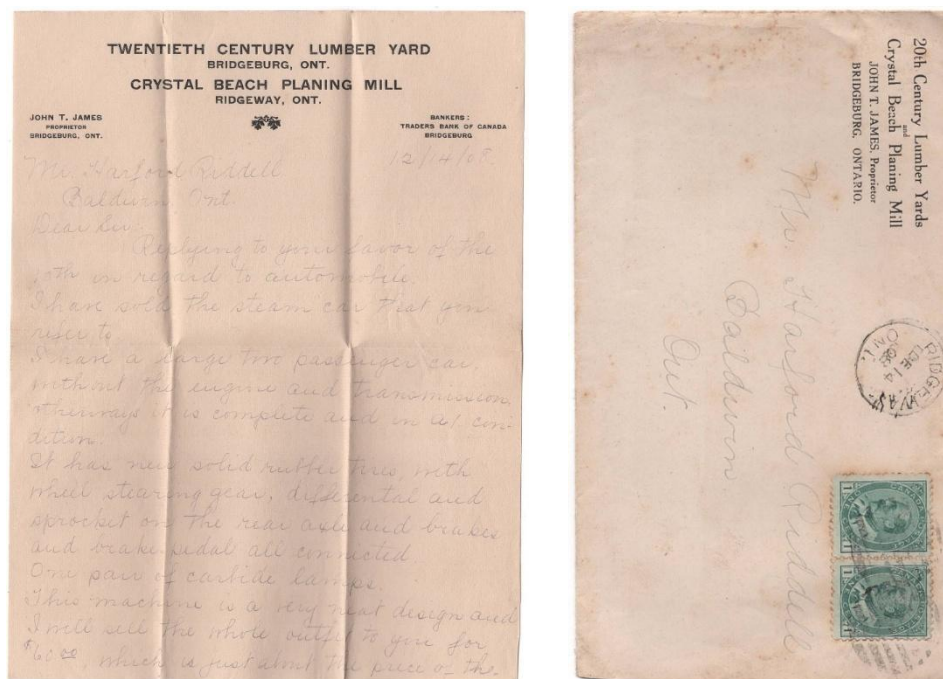 TWENTIETH CENTURY LUMBER YARD
BRIDGEBURG, ONT.
CRYSTAL BEACH PLANING MILL
RIDGEWAY, ONT.
JOHN T. JAMES
PROPRIETOR
BRIDGEBURG, ONT.
BANKERS:
TRADERS BANK OF CANADA
BRIDGEBURG
12/14/08.
Mr. Harford Riddell
Baldwin Ont.
Dear Sir
Replying to your favor of the
10th in regard to automobile.
I have sold the steam car that you
refer to
I have a large two passenger car
without the engine and transmission
otherways it is complete and in A1 con-
dition.
It has new solid rubber tires, with
whell stearing gear, differental and
sprocket on the rear axle and brakes
and brake pedal all connected
One pair of carbide lamps.
This machine is a very neat design and
I will sell the whole outfit to you for
which is just about the price of the
20th Century Lumber Yards
and
Crystal Beach Planing Mill
JOHN T. JAMES, Proprietor
BRIDGEBURG, ONTARIO.
RIDGEWAY
DE 14
Mr. Harford Riddell
Baldwin
Ont.